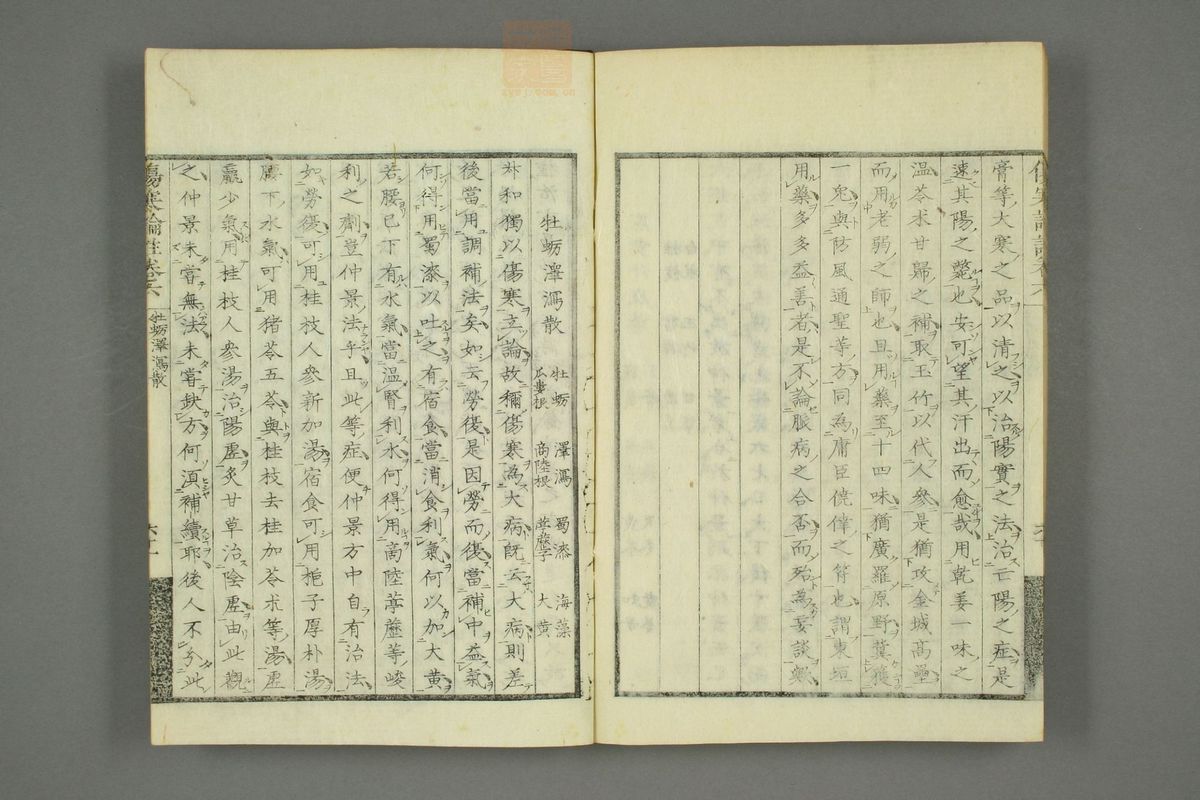 膏等大寒之品以清之以治陽實之法治亡陽之症是
速其陽之斃也安可望其汗出而愈哉用乾姜一味之
溫苓朮甘歸之補取玉竹以代人參是猶攻金城高壘
而用老弱之師也且用藥至十四味猶廣羅原野冀獲
一兎與防風通聖等方同為庸臣僥倖之符也謂東垣
用藥多多益善者是不論脈病之合否而殆為妄談歟
牡蛎澤瀉散 牡蛎 澤瀉 蜀漆 海藻
瓜蔞根 商陸根 葶藶子 大黃
叔和獨以傷寒立論故稱傷寒為大病既云大病則差
後當用調補法矣如云勞後是因勞而復當補中益氣
何得用蜀漆以吐之有宿食當消食利氣何以加大黃
若腰已下有水氣當溫腎利水何得用商陸葶藶等峻
利之劑豈仲景法乎且此等症便仲景方中自有治法
如勞復可用桂枝人參新加湯宿食可用梔子厚朴湯
腰下水氣可用猪苓五苓與桂枝去桂加苓朮等湯虛
羸少氣用桂枝人參湯治陽虛炙甘草治陰虛由此觀
之仲景未嘗無法未嘗缺方何湏補續耶後人不分此
傷寒論註卷六 牡蛎澤瀉散 六十一